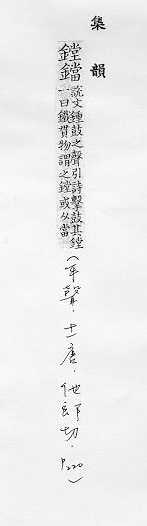 集韻
鏜鐺
說文鍾鼓之聲引詩擊鼓其鏜
一曰鐵貫物謂之鏜或从當
(平聲.十一唐.他郎切.P220)